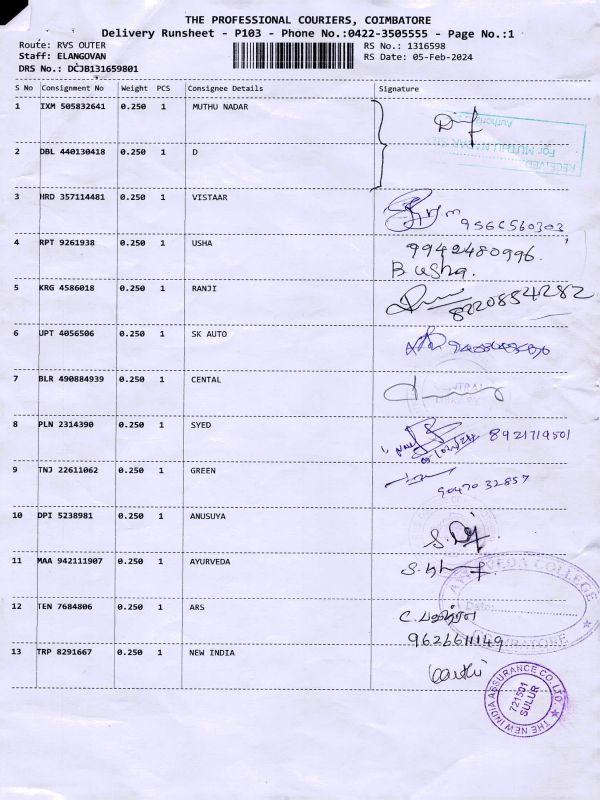 THE PROFESSIONAL COURIERS, COIMBATORE
Delivery Runsheet - P103 - Phone No.:0422-3505555 - Page No.:1
Route: RVS OUTER RS No.: 1316598
Staff: ELANGOVAN RS Date: 05-Feb-2024
DRS No.: DCJB131659801
S No Consignment No Weight PCS Consignee Details Signature
1 IXM 505832641 0.250 1 MUTHU NADAR
RECEIVED
For MUTHU NADAR
2 DBL 440130418 0.250 1 D
3 HRD 357114481 0.250 1 VISTAAR 9566560303
4 RPT 9261938 0.250 1 USHA 9942480996.
B. usha.
5 KRG 4586018 0.250 1 RANJI 8220854282
6 UPT 4056506 0.250 1 SK AUTO
7 BLR 490884939 0.250 1 CENTAL
CENTRAL
8 PLN 2314390 0.250 1 SYED 8921719501
9 TNJ 22611062 0.250 1 GREEN 90470 32857
10 DPI 5238981 0.250 1 ANUSUYA
11 MAA 942111907 0.250 1 AYURVEDA
AYURVEDA COLLEGE
Date:
COIMBATORE
12 TEN 7684806 0.250 1 ARS
9626611149
13 TRP 8291667 0.250 1 NEW INDIA
THE NEW INDIA ASSURANCE CO. LTD.
721501
SULUR